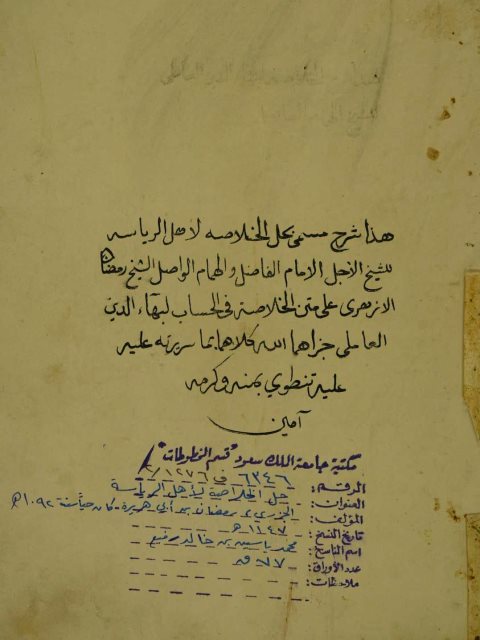 هذا شرح مسمى بحل الخلاصه لاهل الرياسه
للشيخ الاجل الامام الفاضل والهمام الواصل الشيخ رمضان
الازهرى على متن الخلاصة فى الحساب لبهاء الدين
العاملى جزاهما الله كلاهما بما سريرته عليه
عليه تنطوي بمنه وكرمه
آمين
مكتبة جامعة الملك سعود "قسم المخطوطات"
الرقم: ٦٣٤٦ ف ١٢٧٦/
العنوان: حل الخلاصة لأهل الرياسة
المؤلف: الجزري، رمضان بن أبي هريرة - كان حيا سنة ١٠٩٢هـ
تاريخ النسخ: ١٢٤٧هـ
اسم الناسخ: محمد ياسين بن
عدد الأوراق: ٧٧ ق
ملاحظات: